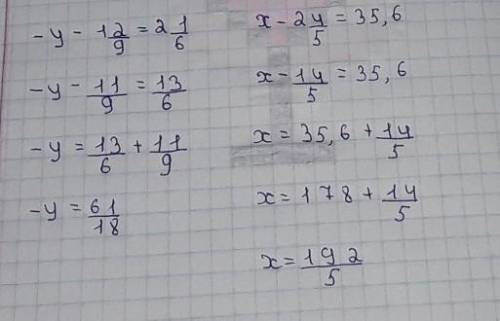 -y - 1 2/9 = 2 1/6
-y - 11/9 = 13/6
-y = 13/6 + 11/9
-y = 61/18
x - 2 4/5 = 35,6
x - 14/5 = 35,6
x = 35,6 + 14/5
x = 178 + 14/5
x = 192/5